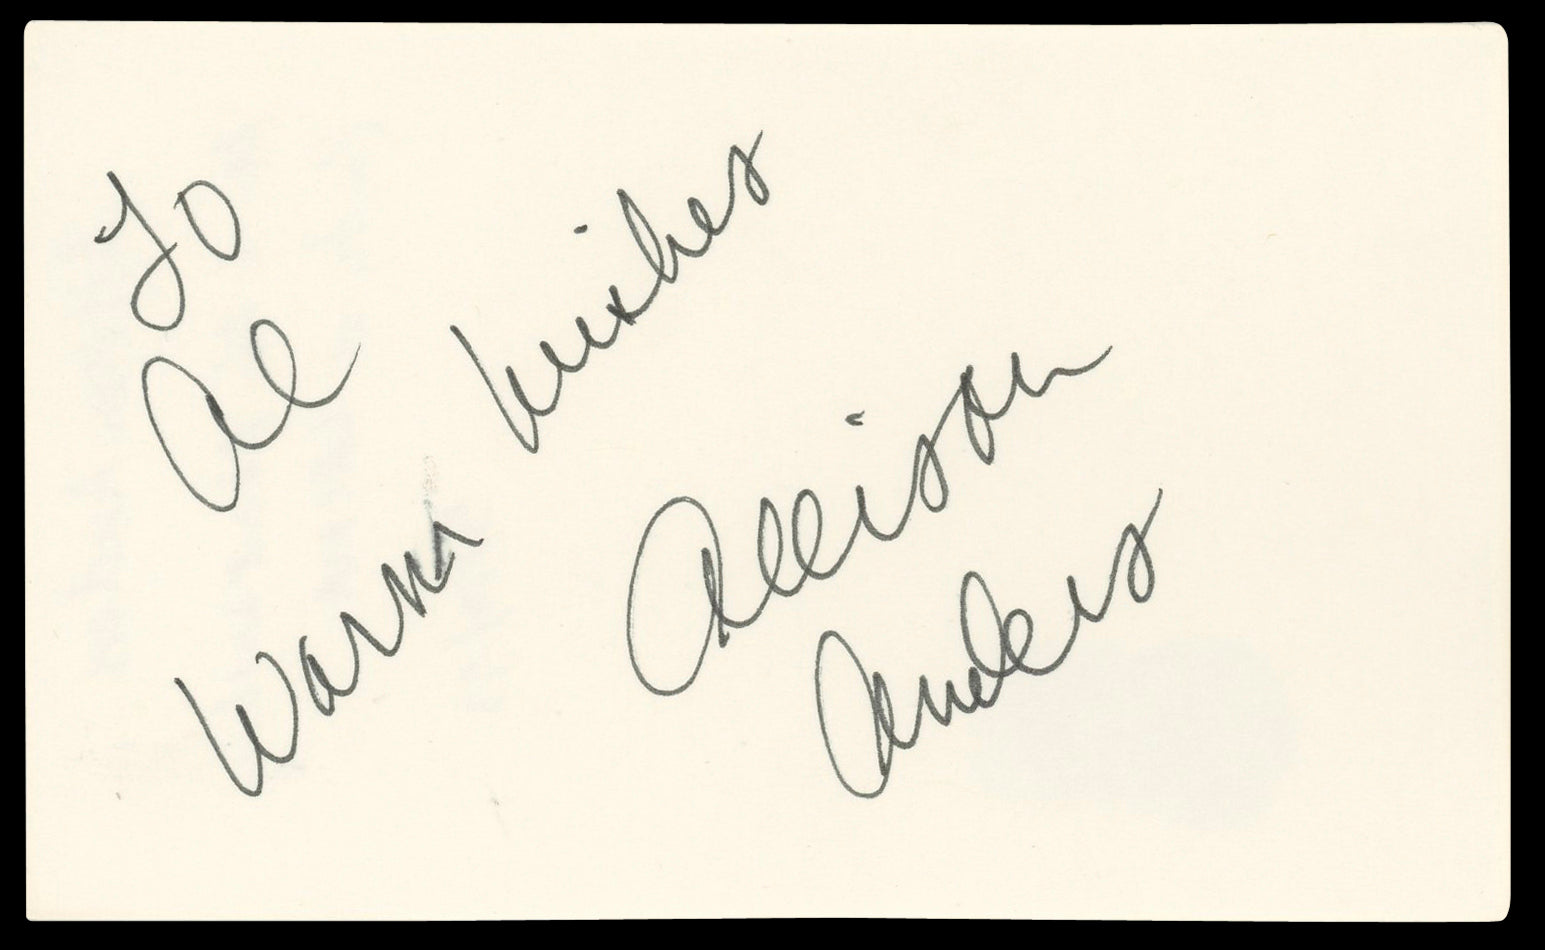 To
Al
Warm Wishes
Allison
Anders